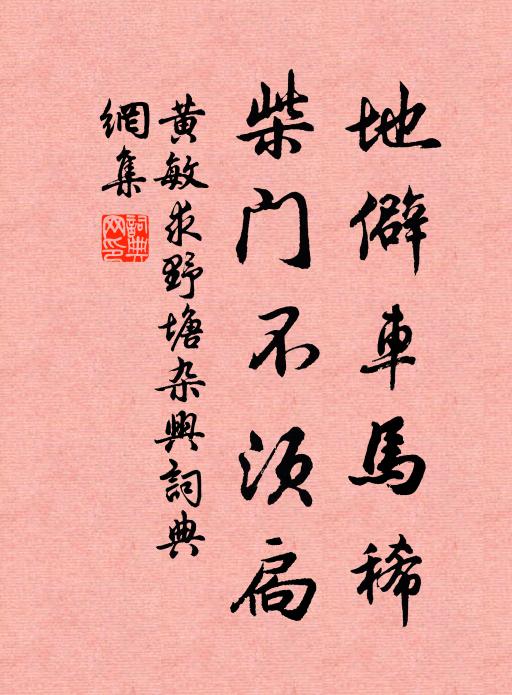 地僻車馬稀
柴门不须扃
黄敏求野塘杂興詞典
網集
詞典网印